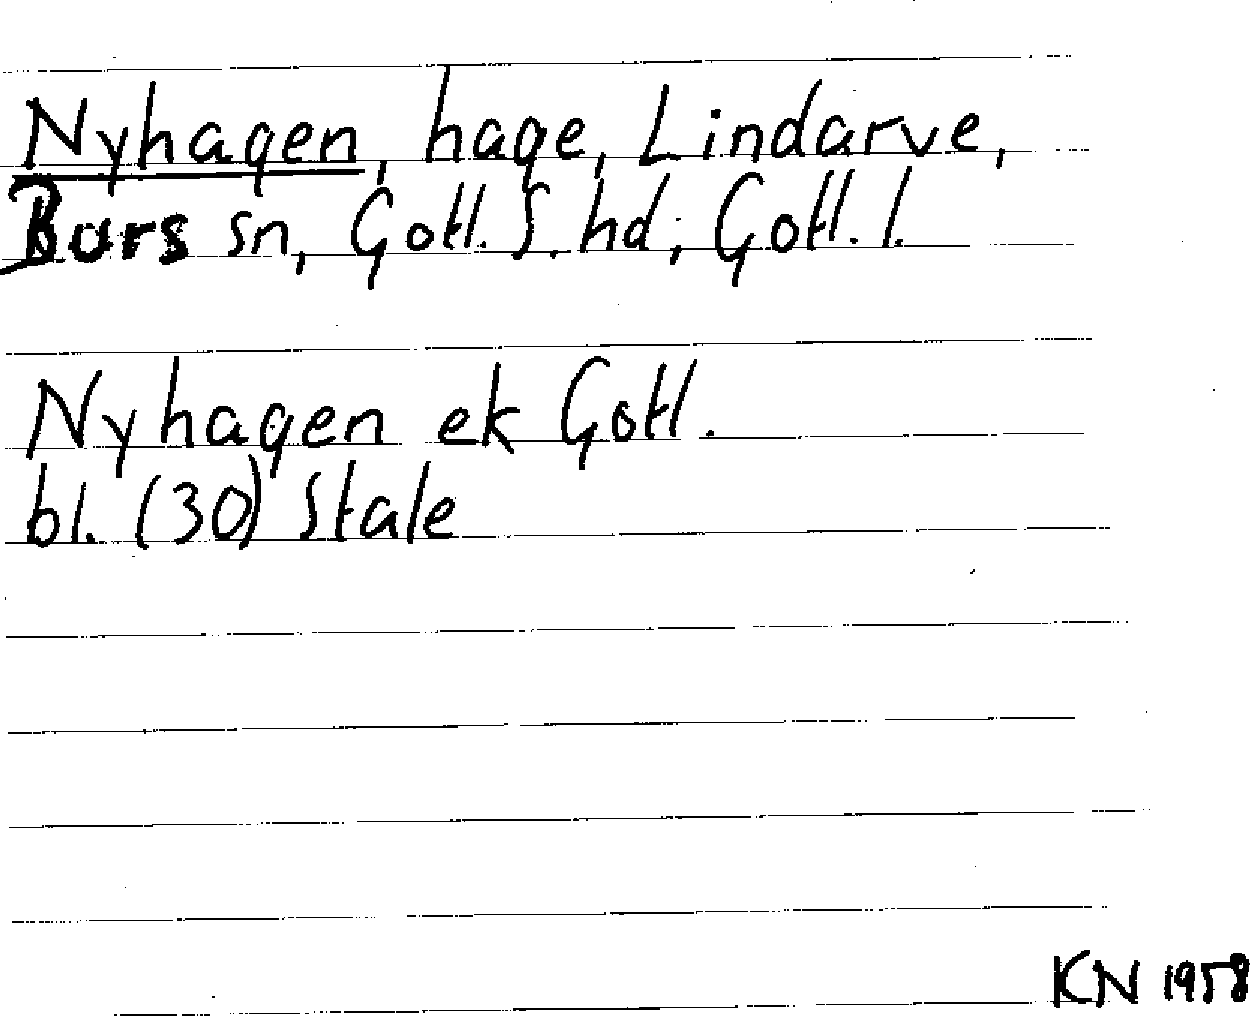 Nyhagen, hage, Lindarve,
Burs sn, Gotl. S. hd, Gotl. l.
Nyhagen ek Gotl.
bl. (30) Stale
KN 1958